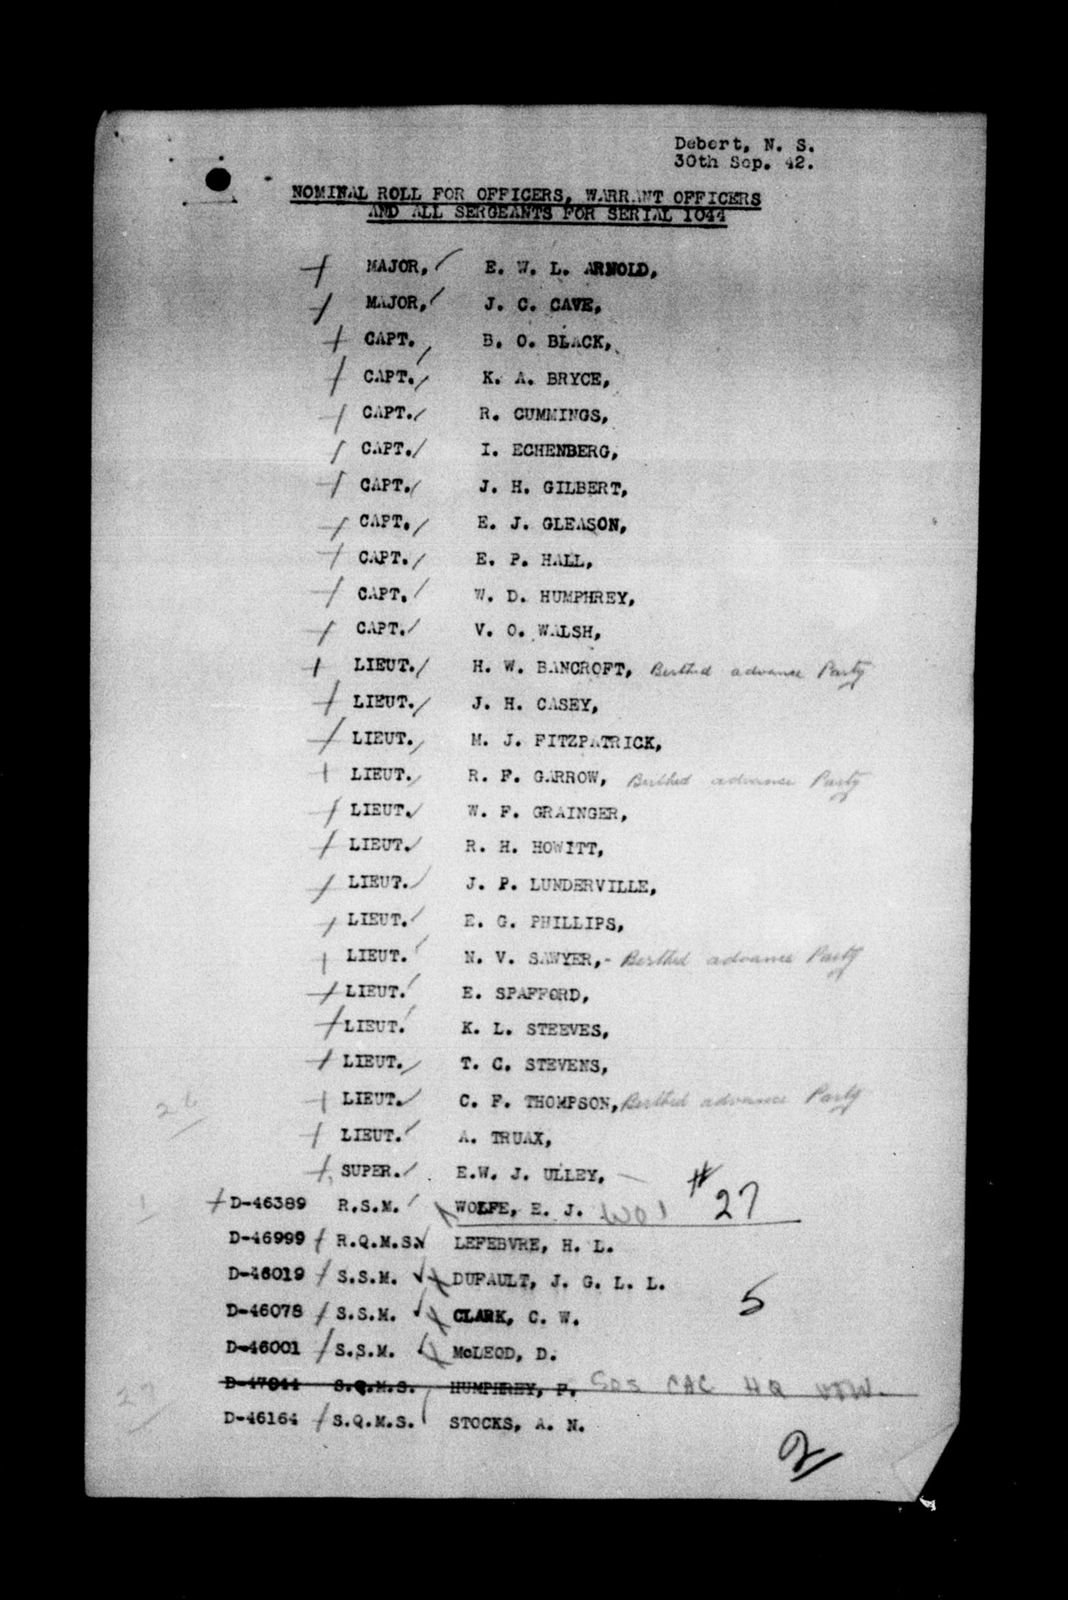 Debert, N. S.
30th Sep. 42.
NOMINAL ROLL FOR OFFICERS, WARRANT OFFICERS
AND ALL SERGEANTS FOR SERIAL 1044
MAJOR, E. W. L. ARNOLD,
MAJOR, J. C. CAVE,
CAPT. B. O. BLACK,
CAPT. K. A. BRYCE,
CAPT. R. CUMMINGS,
CAPT. I. ECHENBERG,
CAPT. J. H. GILBERT,
CAPT. E. J. GLEASON,
CAPT. E. P. HALL,
CAPT. W. D. HUMPHREY,
CAPT. V. O. WALSH,
LIEUT. H. W. BANCROFT, Berthed advance Party
LIEUT. J. H. CASEY,
LIEUT. M. J. FITZPATRICK,
LIEUT. R. F. GARROW, Berthed advance Party
LIEUT. W. F. GRAINGER,
LIEUT. R. H. HOWITT,
LIEUT. J. P. LUNDERVILLE,
LIEUT. E. G. PHILLIPS,
LIEUT. N. V. SAWYER,- Berthed advance Party
LIEUT. E. SPAFFORD,
LIEUT. K. L. STEEVES,
LIEUT. T. C. STEVENS,
LIEUT. C. F. THOMPSON, Berthed advance Party
26
LIEUT. A. TRUAX,
SUPER. E.W. J. ULLEY,
1 D-46389 R.S.M. WOLFE, E. J. WO1 # 27
D-46999 R.Q.M.S. LEFEBVRE, H. L.
D-46019 S.S.M. DUFAULT, J. G. L. L.
D-46078 S.S.M. CLARK, C. W. 5
D-46001 S.S.M. McLEOD, D.
27 S.Q.M.S. HUMPHREY, P. SOS CAC HQ
D-46164 S.Q.M.S. STOCKS, A. N.
2